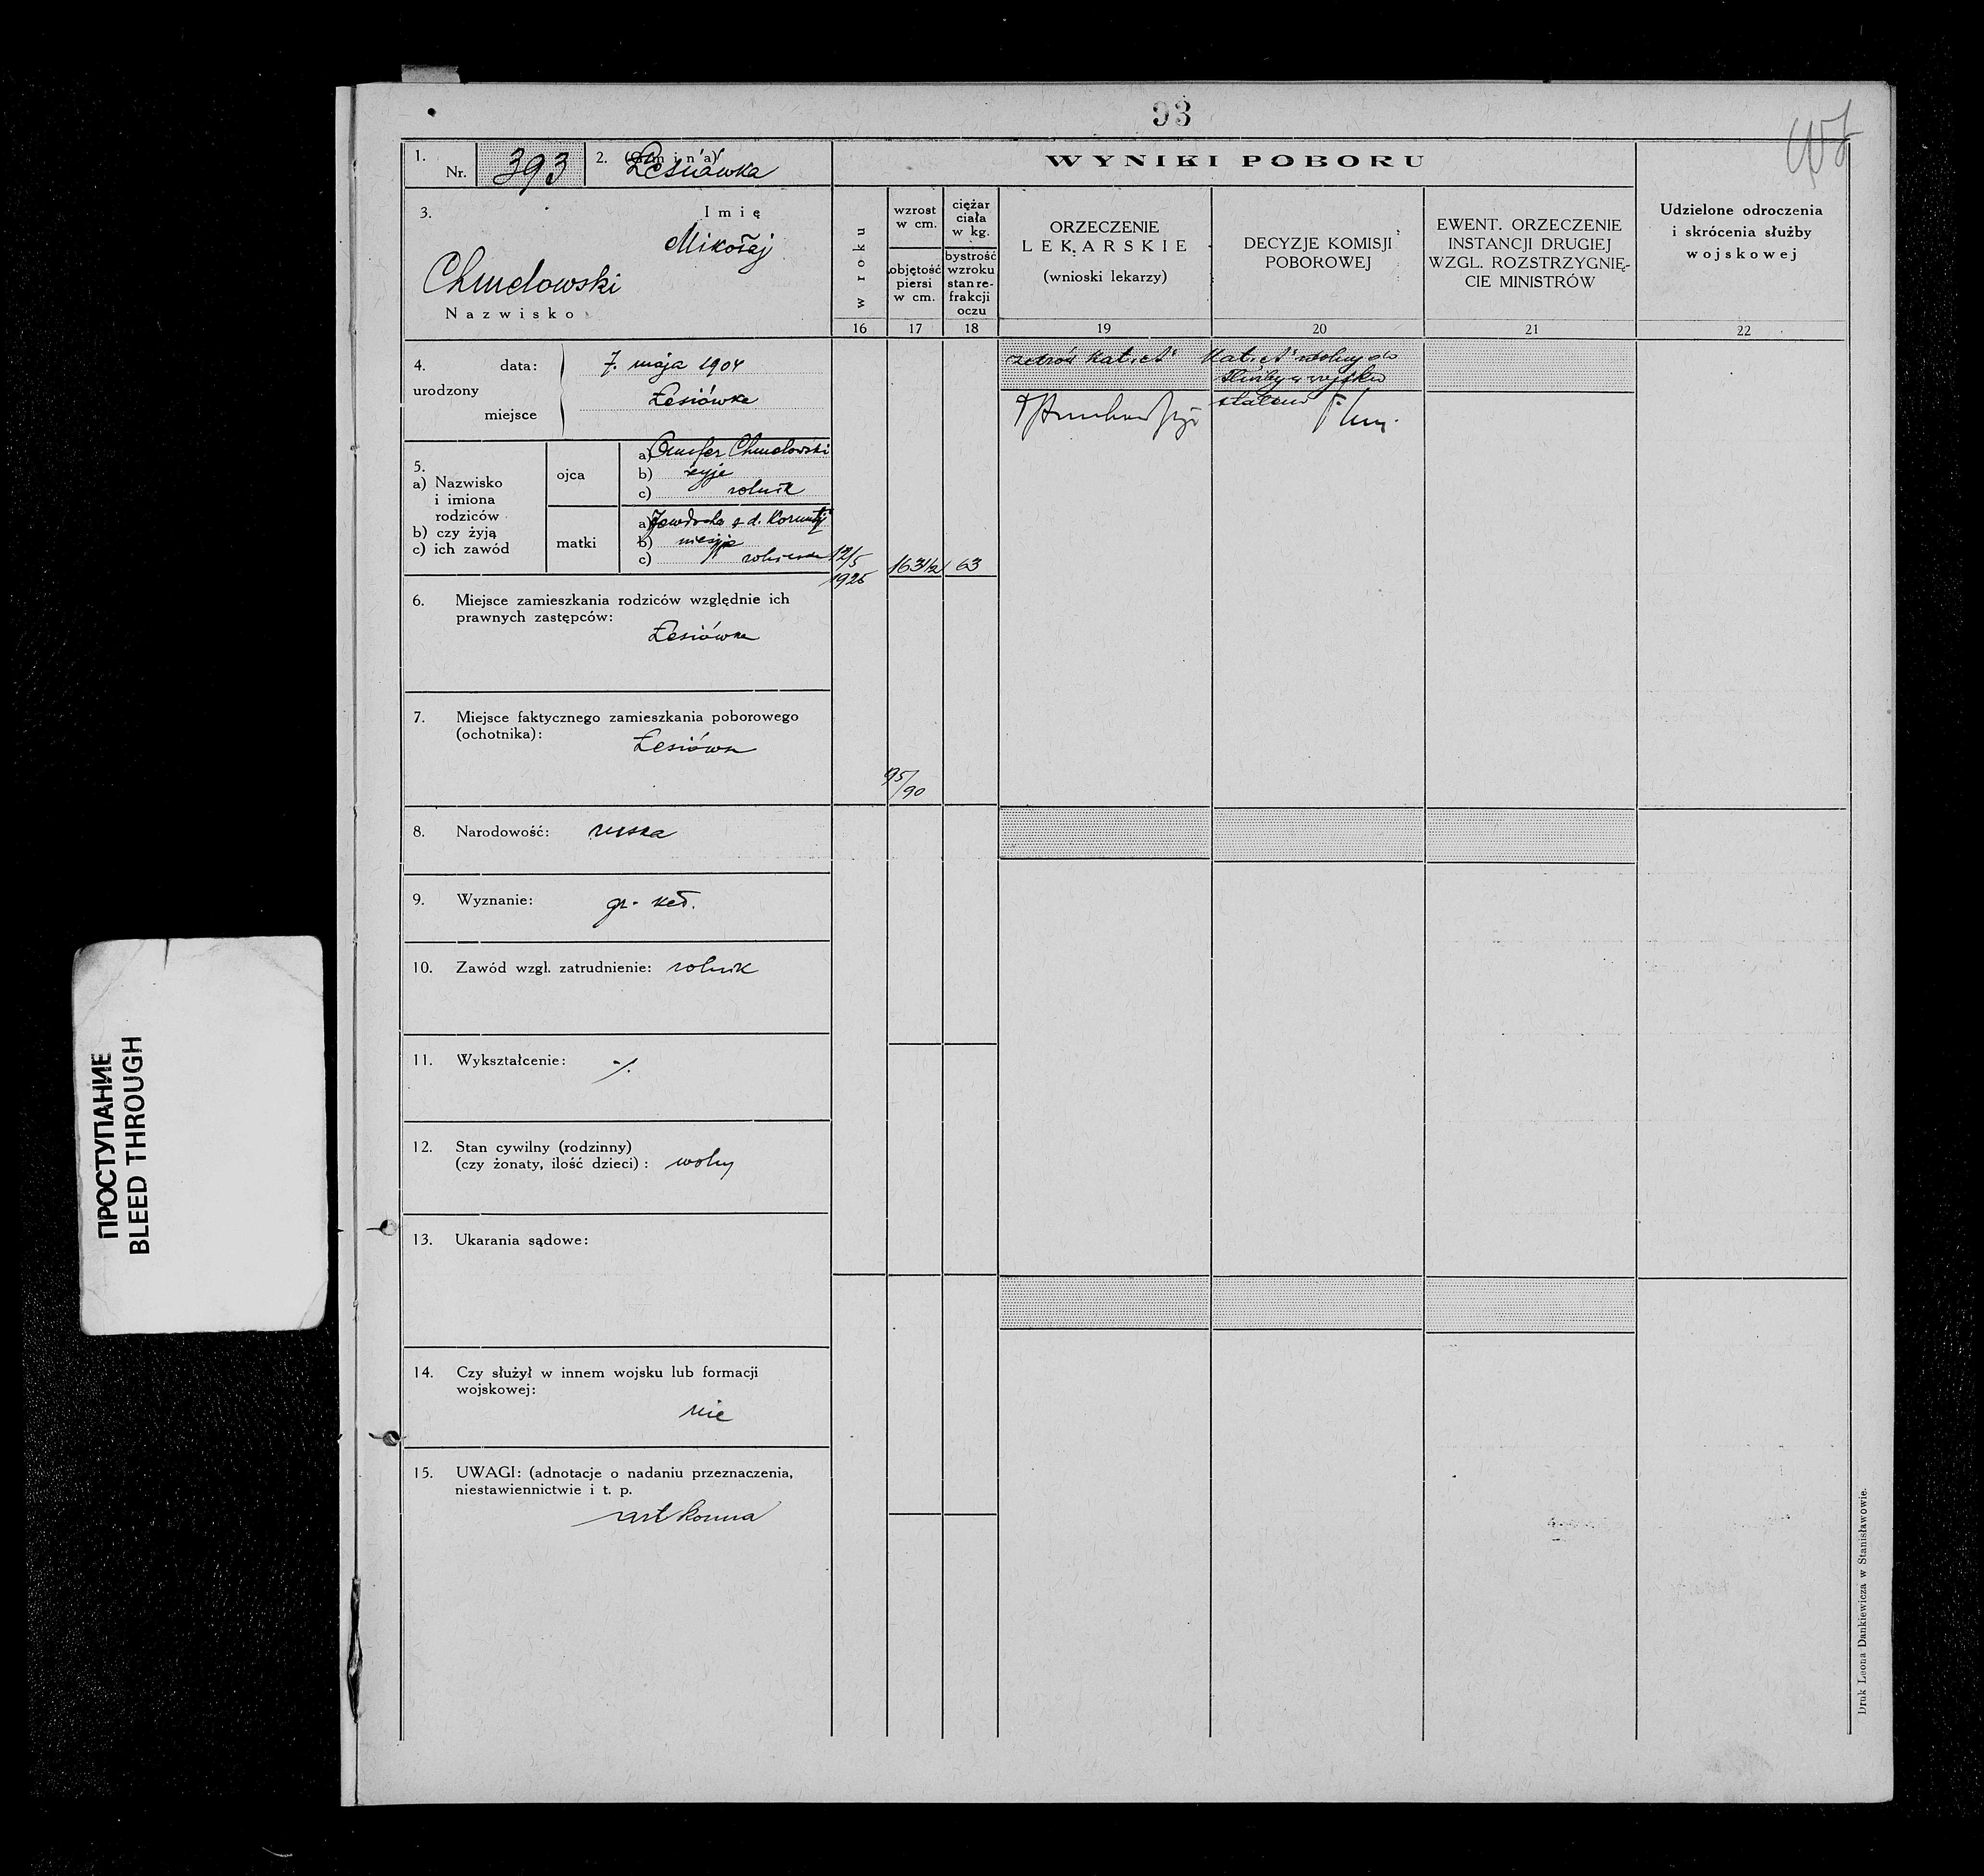 93
1. Nr. 393 2. (Gmina)
WYNIKI POBORU
3. Imię
Mikołaj
Chmelowski
Nazwisko
w roku
wzrost w cm.
objętość piersi w cm.
ciężar ciała w kg.
bystrość wzroku stan re-frakcji oczu
ORZECZENIE
LEKARSKIE
(wnioski lekarzy)
DECYZJE KOMISJI
POBOROWEJ
EWENT. ORZECZENIE
INSTANCJI DRUGIEJ
WZGL. ROZSTRZYGNIĘ-
CIE MINISTRÓW
Udzielone odroczenia
i skrócenia służby
wojskowej
16 17 18 19 20 21 22
4. data: 7. maja 1904
urodzony
miejsce Łesiówka
zdrów kat. "A"
Kat. "A" zdolny do
służby w wojsku
stałem
5.
a) Nazwisko
i imiona
rodziców
b) czy żyją
c) ich zawód
ojca
a) Onufer Chmelowski
b) żyje
c) rolnik
matki
a)
b) nieżyje
c)
12/5
1925
163 1/2 63
6. Miejsce zamieszkania rodziców względnie ich
prawnych zastępców:
Łesiówka
7. Miejsce faktycznego zamieszkania poborowego
(ochotnika):
Łesiówka
95/90
8. Narodowość: ruska
9. Wyznanie: gr. kat.
10. Zawód wzgl. zatrudnienie: rolnik
11. Wykształcenie: -/.
12. Stan cywilny (rodzinny)
(czy żonaty, ilość dzieci): wolny
13. Ukarania sądowe:
14. Czy służył w innem wojsku lub formacji
wojskowej:
nie
15. UWAGI: (adnotacje o nadaniu przeznaczenia,
niestawiennictwie i t. p.
art konna
Druk Leona Dankiewicza w Stanisławowie.
ПРОСТУПАНИЕ
BLEED THROUGH